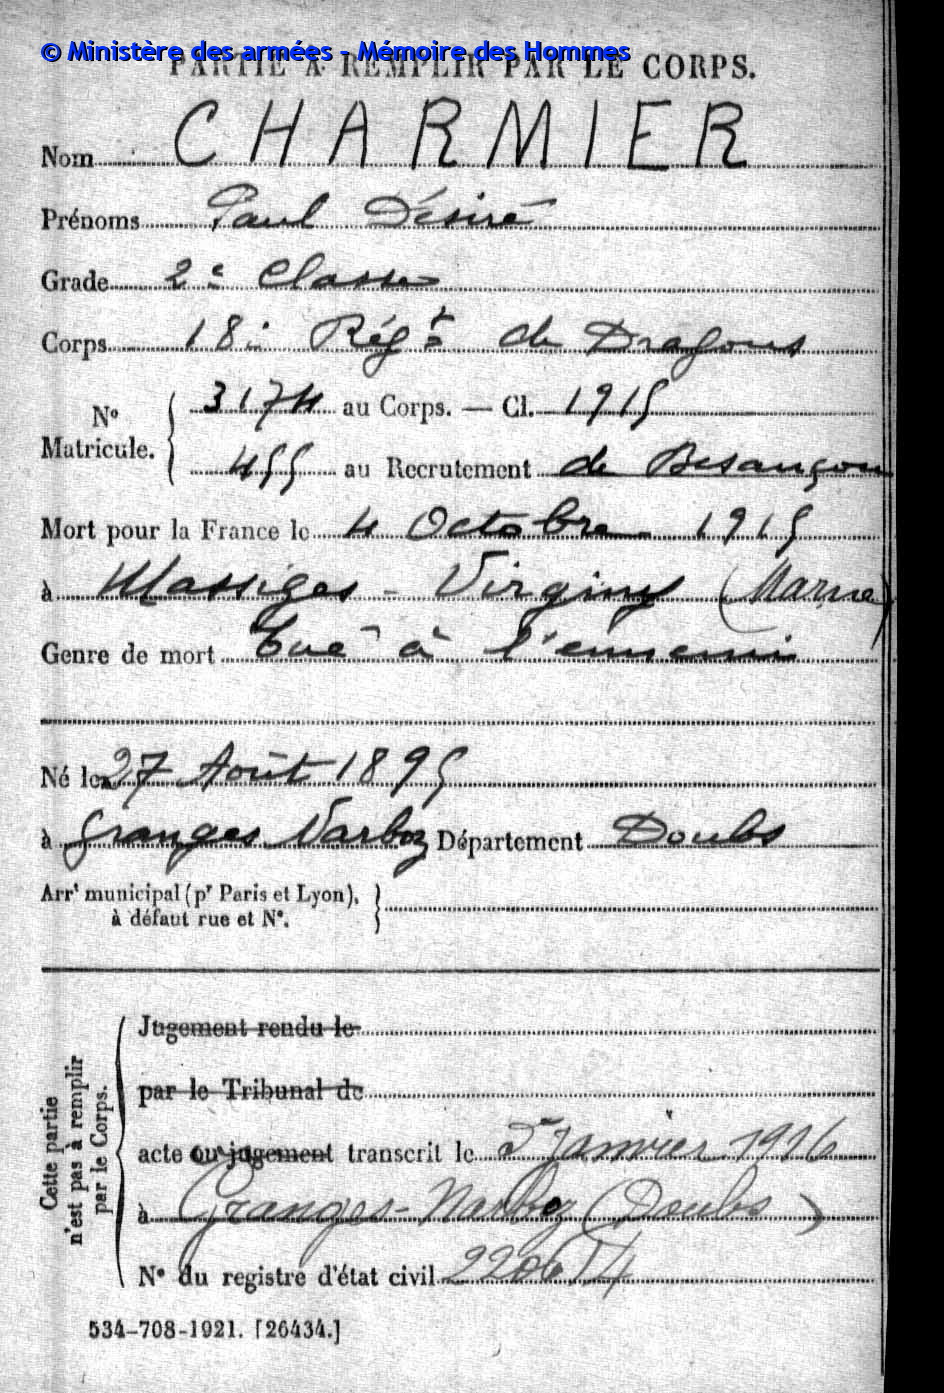 © Ministère des armées - Mémoire des Hommes
PARTIE À REMPLIR PAR LE CORPS.
Nom CHARMIER
Prénoms Paul Désiré
Grade 2e Classe
Corps 18e Régt de Dragons
No Matricule. { 3174 au Corps. — Cl. 1915
455 au Recrutement de Besançon
Mort pour la France le 4 Octobre 1915
à Massiges - Virginy (Marne)
Genre de mort Tué à l'ennemi
Né le 27 Août 1895
à Granges Narboz Département Doubs
Arrt municipal (pr Paris et Lyon), }
à défaut rue et No.
Cette partie
n'est pas à remplir
par le Corps.
Jugement rendu le
par le Tribunal de
acte ou jugement transcrit le 2 Janvier 1916
à Granges-Narboz (Doubs)
No du registre d'état civil
534-708-1921. [26434.]